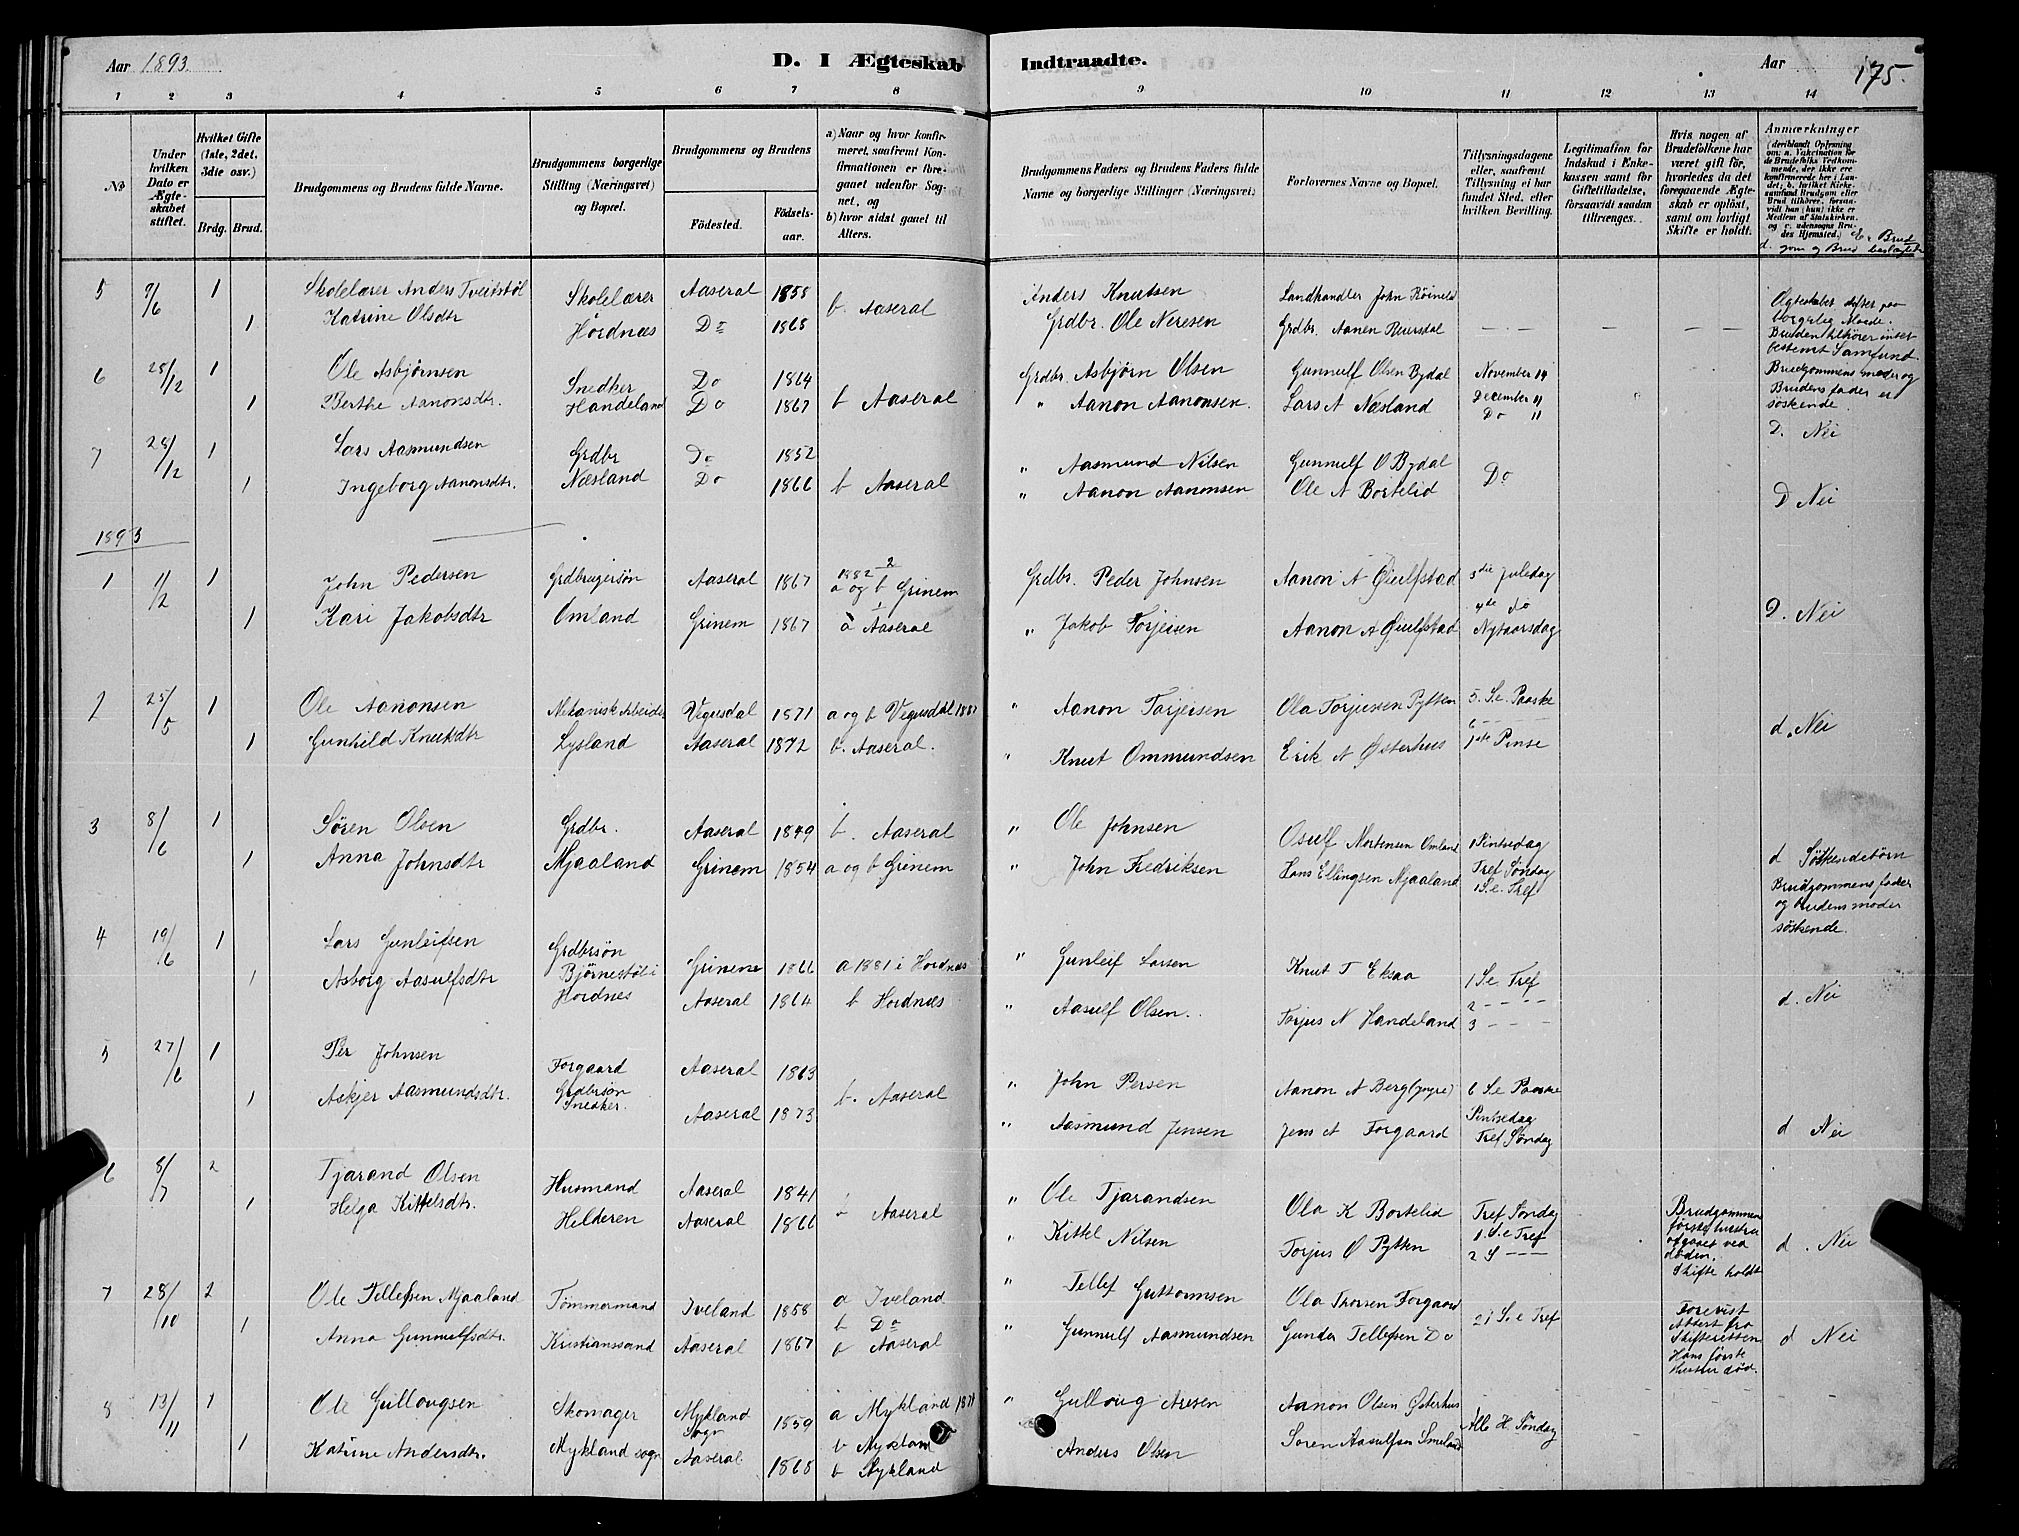 Aar 1893.
D. I Ægteskab Indtraadte.
Aar 175.
1 2 3 4 5 6 7 8 9 10 11 12 13 14
No
Under hvilken Dato er Ægteskabet stiftet.
Hvilket Gifte (1ste, 2det, 3die osv.)
Brdg. Brud.
Brudgommens og Brudens fulde Navne.
Brudgommens borgerlige Stilling (Næringsvei) og Bopæl.
Brudgommens og Brudens
Fødested.
Fødselsaar.
a) Naar og hvor konfirmeret, saafremt Konfirmationen er foregaaet udenfor Sognet, og
b) hvor sidst gaaet til Alters.
Brudgommens Faders og Brudens Faders fulde Navne og borgerlige Stillinger (Næringsvei).
Forlovernes Navne og Bopæl.
Tillysningsdagene eller, saafremt Tillysning ei har fundet Sted, efter hvilken Bevilling.
Legitimation for Indskud i Enkekassen samt for Giftetilladelse, forsaavidt saadan tiltrænges.
Hvis nogen af Brudefolkene har været gift før, hvorledes da det foregaaende Ægteskab er opløst, samt om lovligt Skifte er holdt.
Anmærkninger (deriblandt Oplysning om: a. Vakcination for de Brudefolks Vedkommende, der ikke ere konfirmerede her i Landet; b. hvilket Kirkesamfund Brudgom eller Brud tilhører, forsaavidt han (hun) ikke er Medlem af Statskirken, og c. udensogns Brudes Hjemsted.)
5 9/6 1 Skolelærer Anders Tveitstøl Skolelærer Aaseral 1855 b. Aaseral Anders Knutsen Landhandler John Røineli Ægteskabet stiftet paa borgerlig Maade.
1 Katrine Olsdtr Hordnæs Do 1868 Grdbr. Ole Neresen Grdbr. Aanen Reiersdal Bruden tilhører intet bestemt Samfund
6 28/12 1 Ole Asbjørnsen Snedker Do 1864 Grdbr. Asbjörn Olsen Gunnulf Olsen Bydal November 19 Brudgommens moder og
1 Berthe Aanonsdtr. Handeland Do 1867 b Aaseral " Aanon Aanonsen. Lars A Næsland December 11 Do " Brudens fader er søskende.
7 28/12 1 Lars Aasmundsen Grdbr Do 1852 " Aasmund Nilsen Gunnulf O Bydal Do D. Nei
1 Ingeborg Aanonsdtr. Næsland Do 1866 b Aaseral " Aanon Aanonsen Ole A Bortelid D Nei
1893
1 1/2 1 John Pedersen Grdbrugersøn Aaseral 1867 1882 2 a og b Grinem Grdbr. Peder Johnsen Aanon A Øiulfstad 3die Juledag
1 Kari Jakobsdtr Omland Grinem 1867 a Aaseral " Jakob Torjesen Aanon A Øiulfstad 4de do Nytaarsdag D. Nei
2 25/5 1 Ole Aanonsen Mekanisk Arbeider Vegusdal 1871 a og b Vegusdal 1887 " Aanon Torjersen Ola Torjussen Pytten 5. S. e. Paaske 6 - -
1 Gunhild Knutsdtr Lysland Aaseral 1872 b. Aaseral. " Knut Ommundsen Erik A Østerhus 1ste Pinse d. Nei
3 8/6 1 Søren Olsen Grdbr. Aaseral 1849 b. Aaseral " Ole Johnsen Osulf Mortensen Omland Pintsedag
1 Anna Johnsdtr Mjaaland Grinem 1854 a og b Grinem " John Fredriksen Hans Ellingsen Mjaaland Tref Søndag 1 S. e. Tref d Søskendebørn Brudgommens fader og brudens moder søskende.
4 19/6 1 Lars Gunleifsen Grdbrsøn Bjørnestøl i Grinem 1866 a 1881 i Hordnæs " Gunleif Larsen Knut T Eksaa 1 S. e Tref
1 Asborg Aasulfsdtr Hordnes Aaseral 1864 b Hordnæs " Aasulf Olsen. Torjus N Handeland 2 - - - 3 - - d. Nei
5 27/6 1 Per Johnsen Forgaard Aaseral 1863 " John Persen Aanon A Berg (yngre) 6 S. e Paaske
1 Askjer Aasmundsdtr. Grdbrsøn Snedker. Aaseral 1873 b. Aaseral " Aasmund Jensen Jens A Forgaard Pintsedag Tref Søndag d Nei
6 8/7 2 Tjarand Olsen Husmand Aaseral 1841 " Ole Tjarandsen Ola K Bortelid Tref Søndag Brudgommens første hustru afgaaet ved døden. Skifte holdt
1 Helga Kittelsdtr. Helderen Aaseral 1866 Aaseral " Kittel Nilsen Torjus O Pytten 1. S. e Tref 2 S - - - d. Nei
7 28/10 2 Ole Tellefsen Mjaaland Tømmermand Iveland 1858 a Iveland b Do " Tellef Guttormsen Ola Thorsen Forgaard 21 S. e Tref Forevist Attest fra Skifteretten Hans første Hustru død.
1 Anna Gunnulfsdtr. Kristianssand Aaseral 1867 b Aaseral " Gunnulf Aasmundsen Gunder Tellefsen Do d Nei
8 13/11 1 Ole Gullougsen Skomager Mykland Sogn 1859 a Mykland b Mykland " Gulloug Aresen Aanon Olsen Østerhus Alle H. Søndag
1 Katrine Andersdtr. Mykland sogn Aaseral 1868 b Mykland Anders Olsen Søren Aasulfsen Smeland